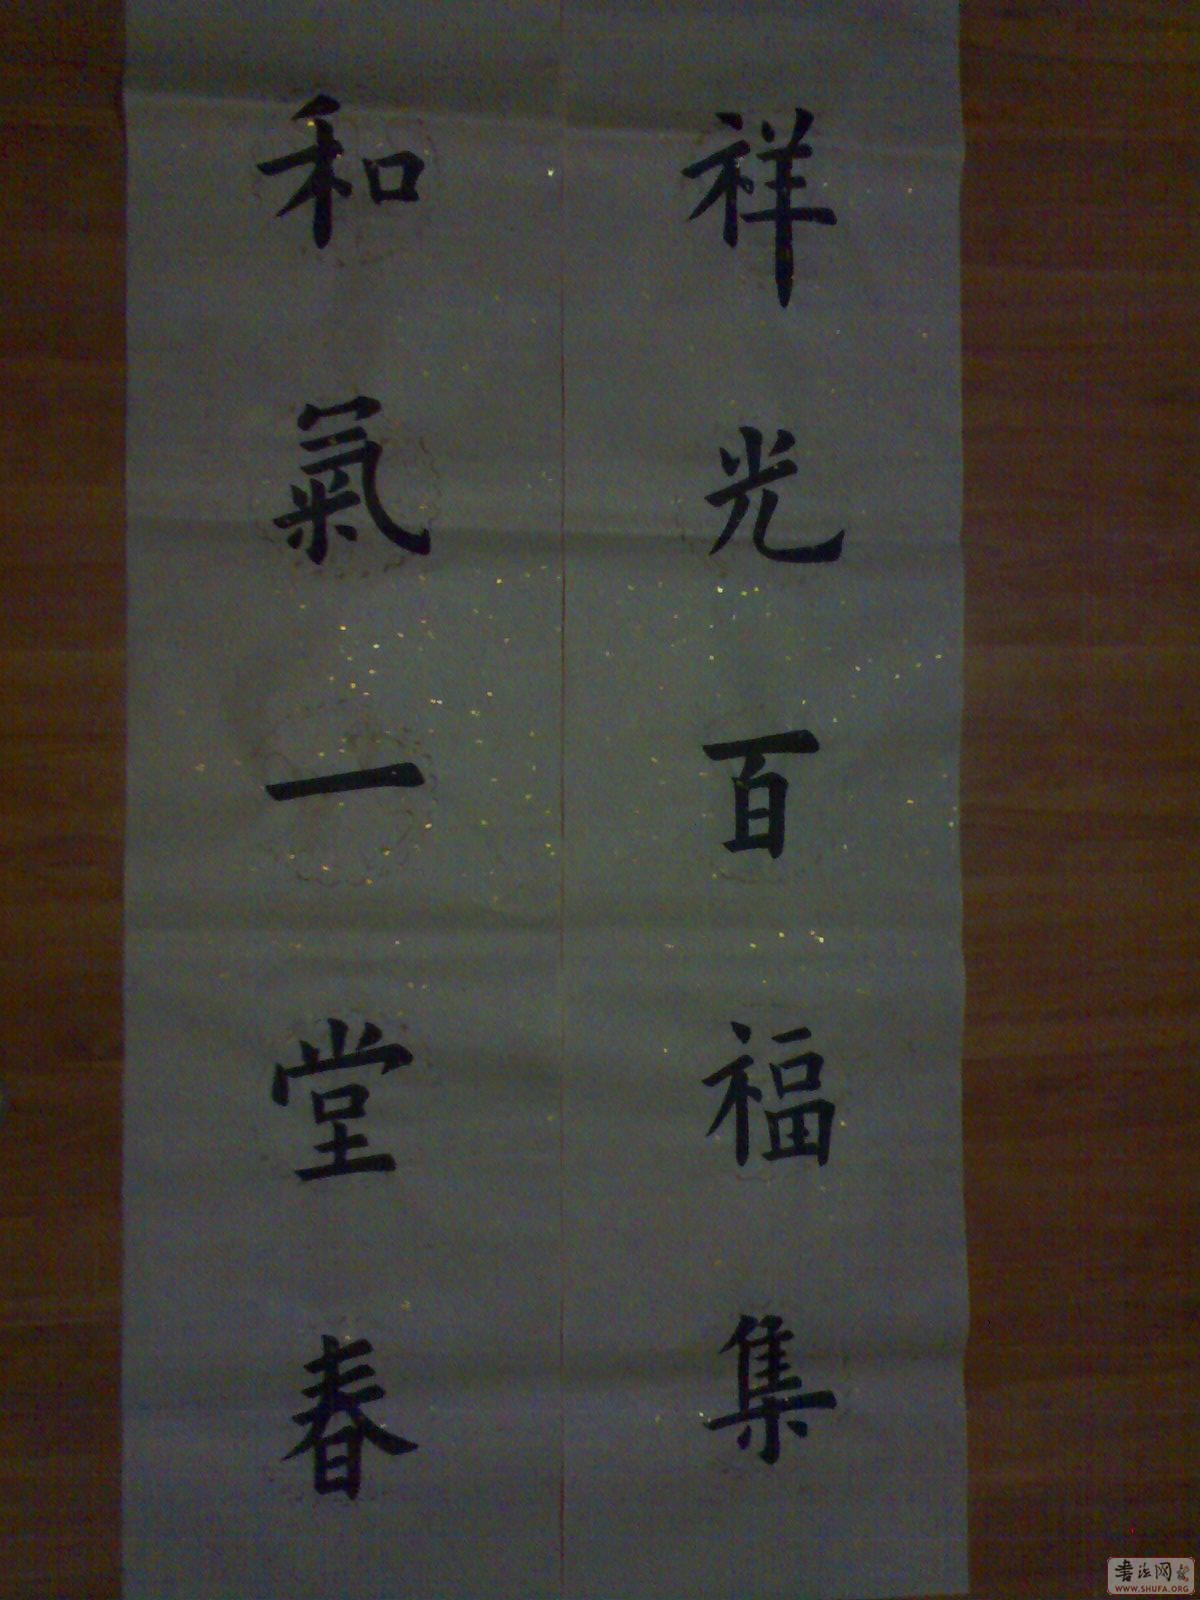 祥光百福集
和氣一堂春
书法网
WWW.SHUFA.ORG